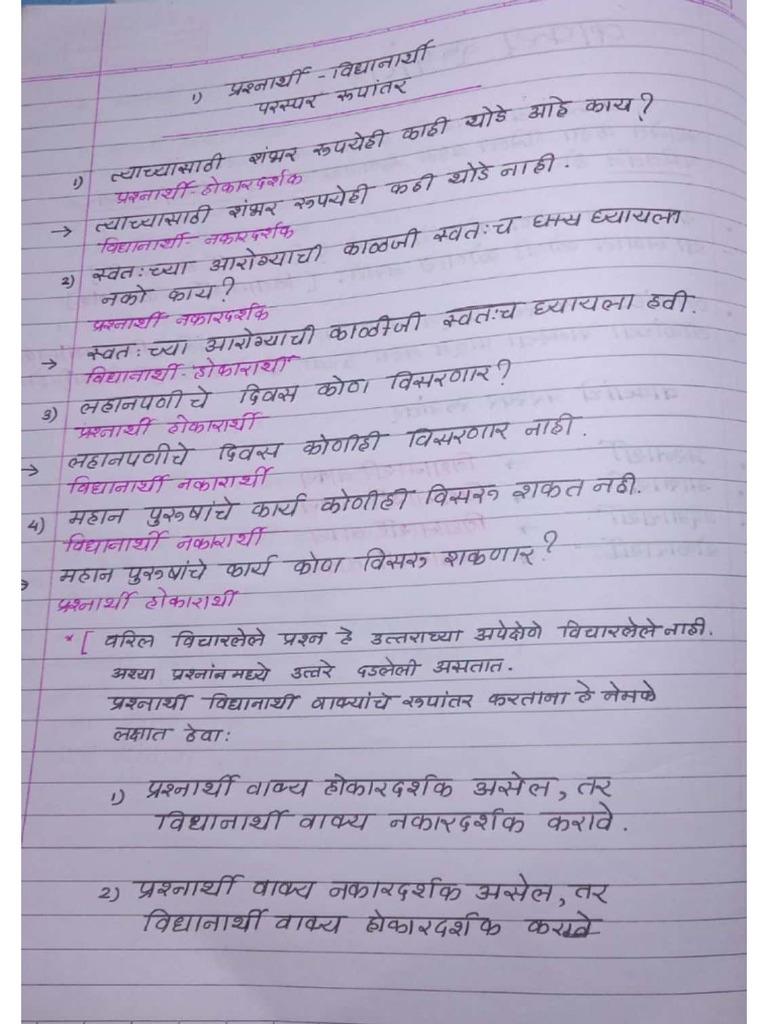 १) प्रश्नार्थी - विधानार्थी
परस्पर रुपांतर
१) त्याच्यासाठी शंभर रुपयेही काही थोडे आहे काय?
प्रश्नार्थी- होकारदर्शक
→ त्याच्यासाठी शंभर रुपयेही कही थोडे नाही.
विधानार्थी- नकारदर्शक
२) स्वतःच्या आरोग्याची काळजी स्वतःच घ्यायला
नको काय?
प्रश्नार्थी नकारदर्शक
→ स्वतःच्या आरोग्याची काळजी स्वतःच घ्यायला हवी.
विधानार्थी- होकारार्थी
३) लहानपणीचे दिवस कोण विसरणार?
प्रश्नार्थी होकारार्थी
→ लहानपणीचे दिवस कोणीही विसरणार नाही.
विधानार्थी नकारार्थी
४) महान पुरुषांचे कार्य कोणीही विसरू शकत नही.
विधानार्थी नकारार्थी
महान पुरुषांचे कार्य कोण विसरू शकणार?
प्रश्नार्थी होकारार्थी
* [ वरिल विचारलेले प्रश्न हे उत्तराच्या अपेक्षेणे विचारलेले नाही.
अश्या प्रश्नांनमध्ये उत्तरे दडलेली असतात.
प्रश्नार्थी विधानार्थी वाक्यांचे रूपांतर करताना हे नेमके
लक्षात ठेवा:
१) प्रश्नार्थी वाक्य होकारदर्शक असेल, तर
विधानार्थी वाक्य नकारदर्शक करावे.
२) प्रश्नार्थी वाक्य नकारदर्शक असेल, तर
विधानार्थी वाक्य होकारदर्शक करावे